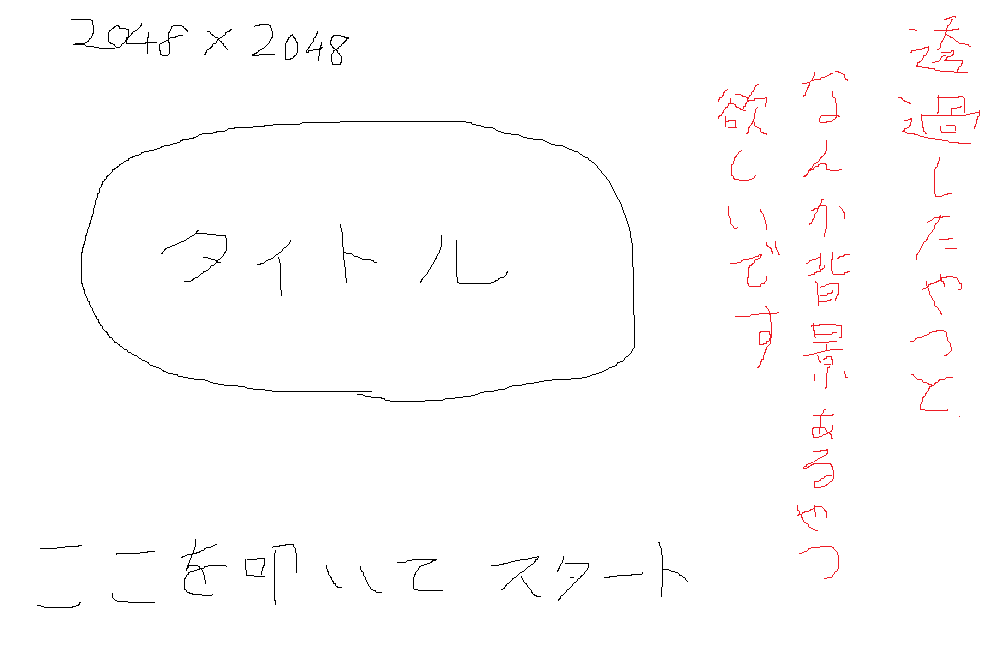 2048×2048
タイトル
ここを叩いてスタート
透過したやつと
なんか背景あるやつ
欲しいです